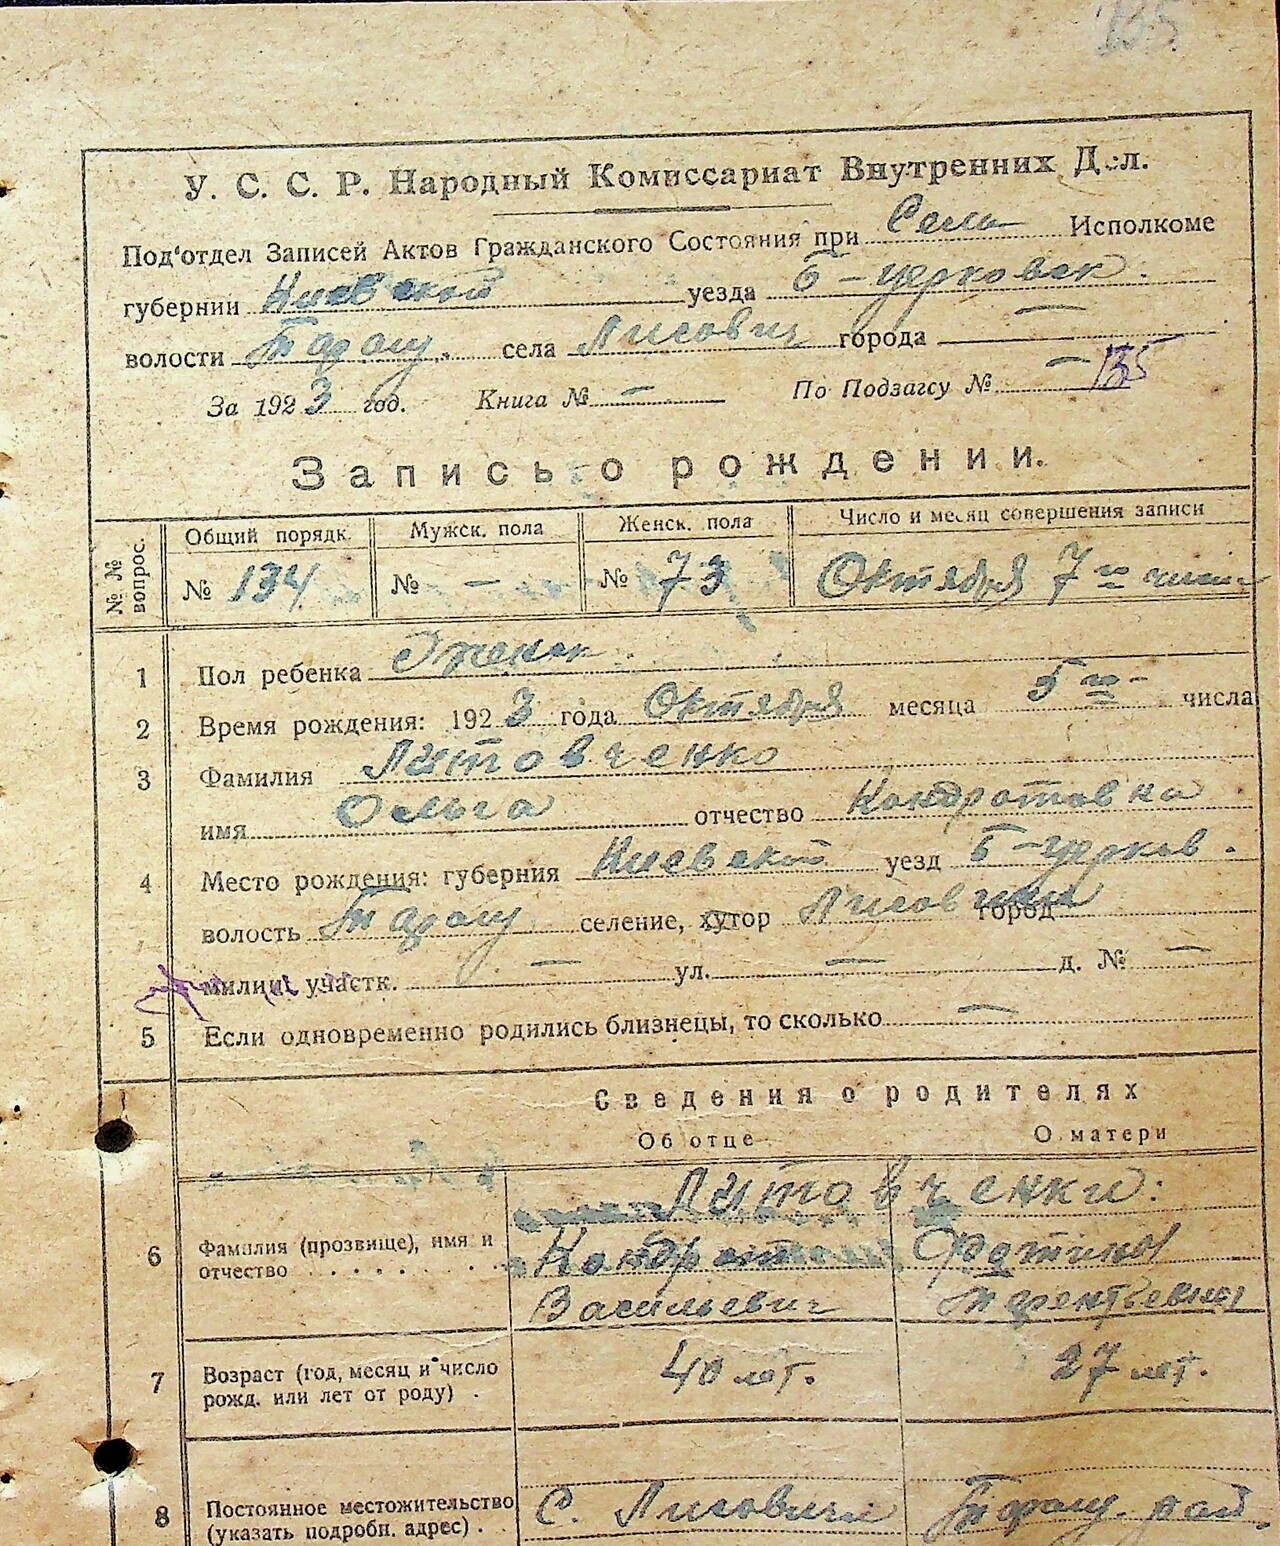 135
У. С. С. Р. Народный Комиссариат Внутренних Дел.
Под'отдел Записей Актов Гражданского Состояния при Сель Исполкоме
губернии Киевской уезда Б-церковск.
волости Таращ. села Лисович города —
За 1923 год. Книга № — По Подзагсу № — 135
Запись о рождении.
№ № вопрос. Общий порядк. Мужск. пола Женск. пола Число и месяц совершения записи
№ 134 № — № 73 Октября 7го числа
1 Пол ребенка Женск.
2 Время рождения: 1923 года Октября месяца 5го- числа
3 Фамилия Литовченко
имя Ольга отчество Кондратовна
4 Место рождения: губерния Киевской уезд Б-церков.
волость Таращ селение, хутор Лисовичи город
милиц. участк. — ул. — д. № —
5 Если одновременно родились близнецы, то сколько —
Сведения о родителях
Об отце О матери
Литовченки:
6 Фамилия (прозвище), имя и Кондрат Фотины
отчество . . . . . . . Васильевич Терентьевны
7 Возраст (год, месяц и число 40 лет. 27 лет.
рожд. или лет от роду) .
8 Постоянное местожительство С. Лисовичи Таращ. рай.
(указать подробн. адрес) .